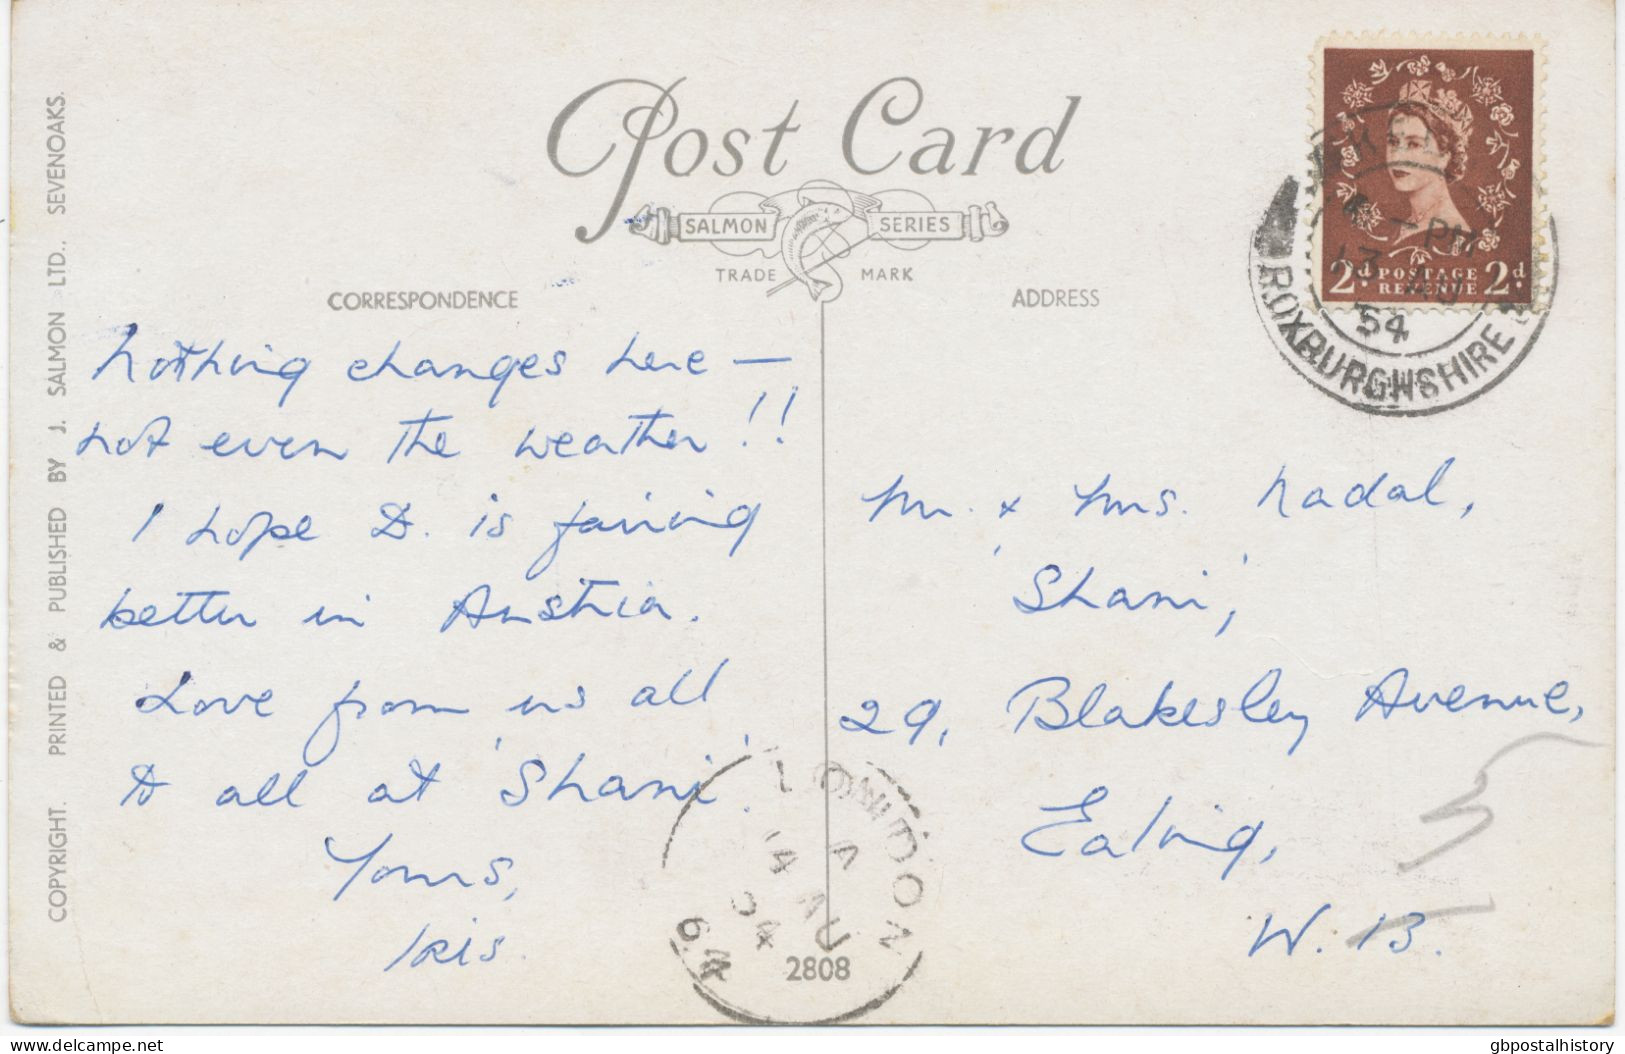 Post Card
SALMON SERIES
TRADE MARK
CORRESPONDENCE
ADDRESS
COPYRIGHT. PRINTED & PUBLISHED BY J. SALMON LTD., SEVENOAKS.
Nothing changes here —
not even the weather!!
I hope D. is fairing
better in Austria.
Love from us all
to all at 'Shani'.
Yours,
Iris.
Mr. & Mrs. Nadal,
'Shani',
29, Blakesley Avenue,
Ealing,
W. 13.
2d POSTAGE REVENUE 2d
PM
13 AU
54
ROXBURGHSHIRE
LONDON
14 AU
54
2808
Delcampe.net
gbpostalhistory